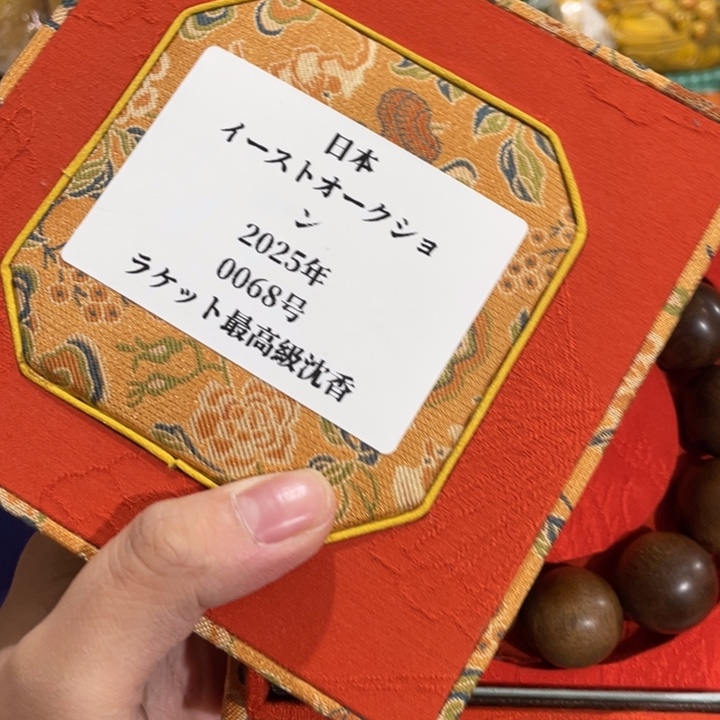 日本
イーストオークショ
ン
2025年
0068号
ラケット最高級沈香